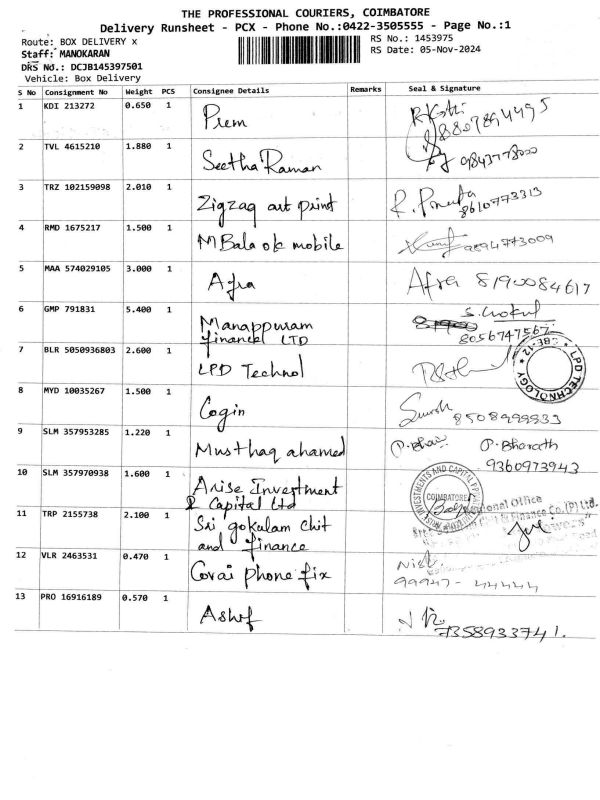 THE PROFESSIONAL COURIERS, COIMBATORE
Delivery Runsheet - PCX - Phone No.:0422-3505555 - Page No.:1
Route: BOX DELIVERY x
RS No.: 1453975
Staff: MANOKARAN
RS Date: 05-Nov-2024
DRS No.: DCJB145397501
Vehicle: Box Delivery
S No Consignment No Weight PCS Consignee Details Remarks Seal & Signature
1 KDI 213272 0.650 1 Prem 8807894495
2 TVL 4615210 1.880 1 Seetha Raman
3 TRZ 102159098 2.010 1 Zigzag art print 8610773313
4 RMD 1675217 1.500 1 M Bala ok mobile 9894773009
5 MAA 574029105 3.000 1 Afra Afra 8190084617
6 GMP 791831 5.400 1 Manappuram S. Gokul
financel LTD 8056747567
7 BLR 5050936803 2.600 1 LPD Technol LPD TECHNOLOGY * CBE-12 *
8 MYD 10035267 1.500 1 Cogin Suresh 8508999933
9 SLM 357953285 1.220 1 Musthaq ahamed P. Bharath
9360973943
10 SLM 357970938 1.600 1 Arise Investment
& Capital Ltd COIMBATORE
11 TRP 2155738 2.100 1 Sri gokulam chit
and finance
12 VLR 2463531 0.470 1 Covai phone fix 99947-44444
13 PRO 16916189 0.570 1 Ashif 7358933741.